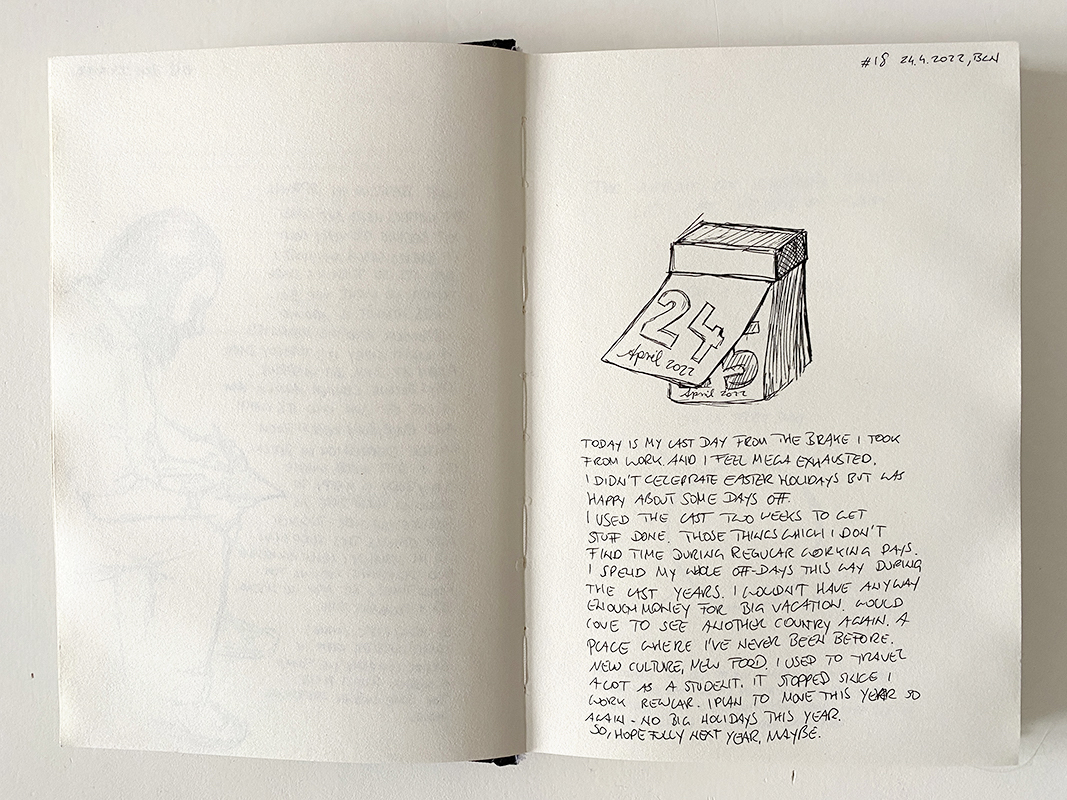 #18 24.4.2022, BLN
24
April 2022
April 2022
TODAY IS MY LAST DAY FROM THE BRAKE I TOOK
FROM WORK. AND I FEEL MEGA EXHAUSTED.
I DIDN'T CELEBRATE EASTER HOLIDAYS BUT WAS
HAPPY ABOUT SOME DAYS OFF.
I USED THE LAST TWO WEEKS TO GET
STUFF DONE. THOSE THINGS WHICH I DON'T
FIND TIME DURING REGULAR WORKING DAYS.
I SPEND MY WHOLE OFF-DAYS THIS WAY DURING
THE LAST YEARS. I WOULDN'T HAVE ANYWAY
ENOUGH MONEY FOR BIG VACATION. WOULD
LOVE TO SEE ANOTHER COUNTRY AGAIN. A
PLACE WHERE I'VE NEVER BEEN BEFORE.
NEW CULTURE, NEW FOOD. I USED TO TRAVEL
A LOT AS A STUDENT. IT STOPPED SINCE I
WORK REGULAR. I PLAN TO MOVE THIS YEAR SO
AGAIN - NO BIG HOLIDAYS THIS YEAR.
SO, HOPEFULLY NEXT YEAR, MAYBE.